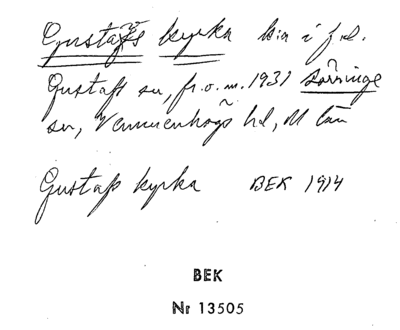 Gustafs kyrka k:a i f.d.
Gustafs sn, fr.o.m. 1931 Sörringe
sn, Vemmenhögs hd, M län
Gustafs kyrka BEK 1914
BEK
Nr 13505